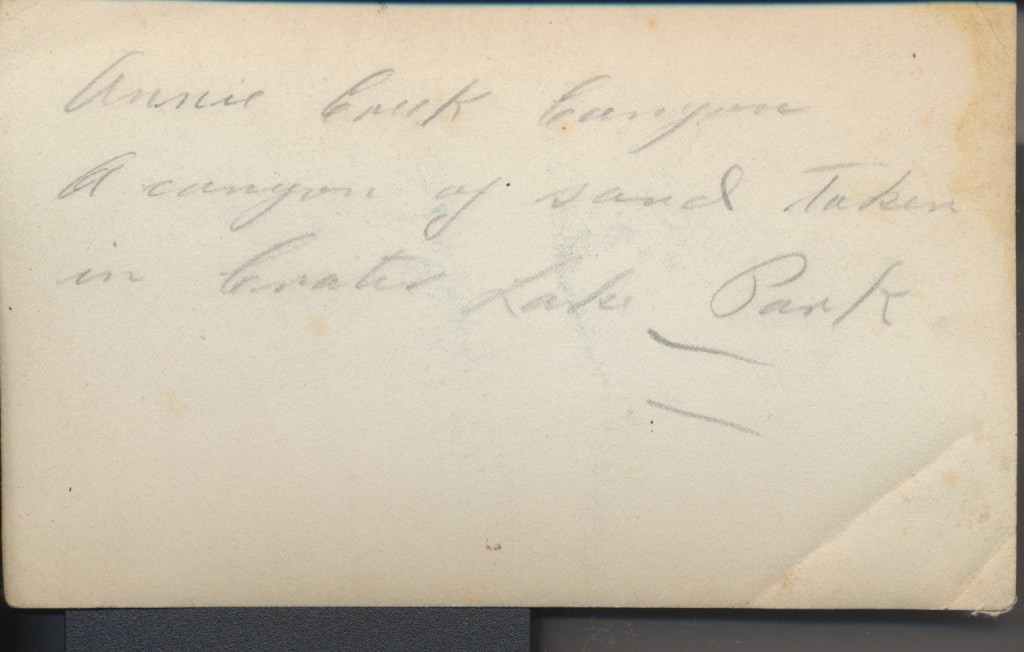 Annie Creek Canyon
A canyon of sand Taken
in Crater Lake Park